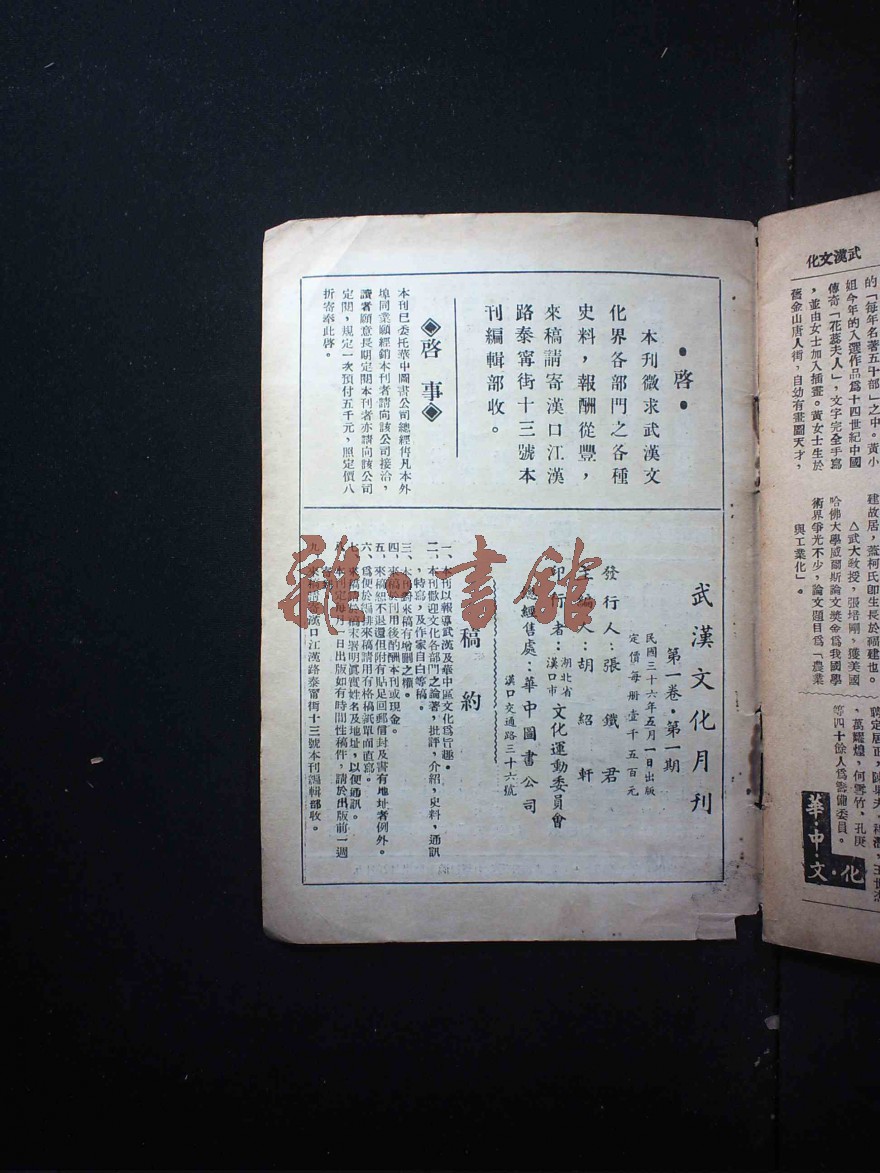 武漢文化
的「每年名著五十部」之中。黃小
姐今年的入選作品爲十四世紀中國
傳奇「花蕊夫人」，文字完全手寫
，並由女士加入插畫。黃女士生於
舊金山唐人街，自幼有畫圖天才，
建故居，蓋柯氏卽生長於福建也。
△武大敎授，張培剛，獲美國
哈佛大學威爾斯論文獎金爲我國學
術界爭光不少，論文題目爲「農業
與工業化」。
、萬耀煌，何雪竹，孔庚
等四十餘人爲籌備委員。
華·中·文·化
·啓·
本刋徵求武漢文
化界各部門之各種
史料，報酬從豐，
來稿請寄漢口江漢
路泰甯街十三號本
刋編輯部收。
◈啓 事◈
本刋已委托華中圖書公司總經售凡本外
埠同業願經銷本刋者請向該公司接洽，
讀者願意長期定閱本刋者亦請向該公司
定閱，規定一次預付五千元，照定價八
折寄奉此啓。
武漢文化月刊
第一卷·第一期
民國三十六年五月一日出版
定價每册壹千五百元
發行人：張鐵君
主編人：胡紹軒
印行者：湖北省漢口市文化運動委員會
總經售處：華中圖書公司
漢口交通路三十六號
稿約
一、本刋以報導武漢及華中區文化爲旨趣。
二、本刋歡迎文化各部門之論著，批評，介紹，史料，通訊
，特寫，及作家自白等稿。
三、本刋對來稿有增刪之權。
四、來稿於刋用後酌酬本刋或現金。
五、來稿恕不退還但附有貼足回郵信封及書有地址者例外。
六、爲便於編排來稿請用有格稿紙單面直寫。
七、來稿請於稿末署明眞實姓名及地址，以便通訊。
八、本刋定每月一日出版如有時間性稿件，請於出版前一週
寄到。
九、來稿請寄漢口江漢路泰甯街十三號本刋編輯部收。
雜書館